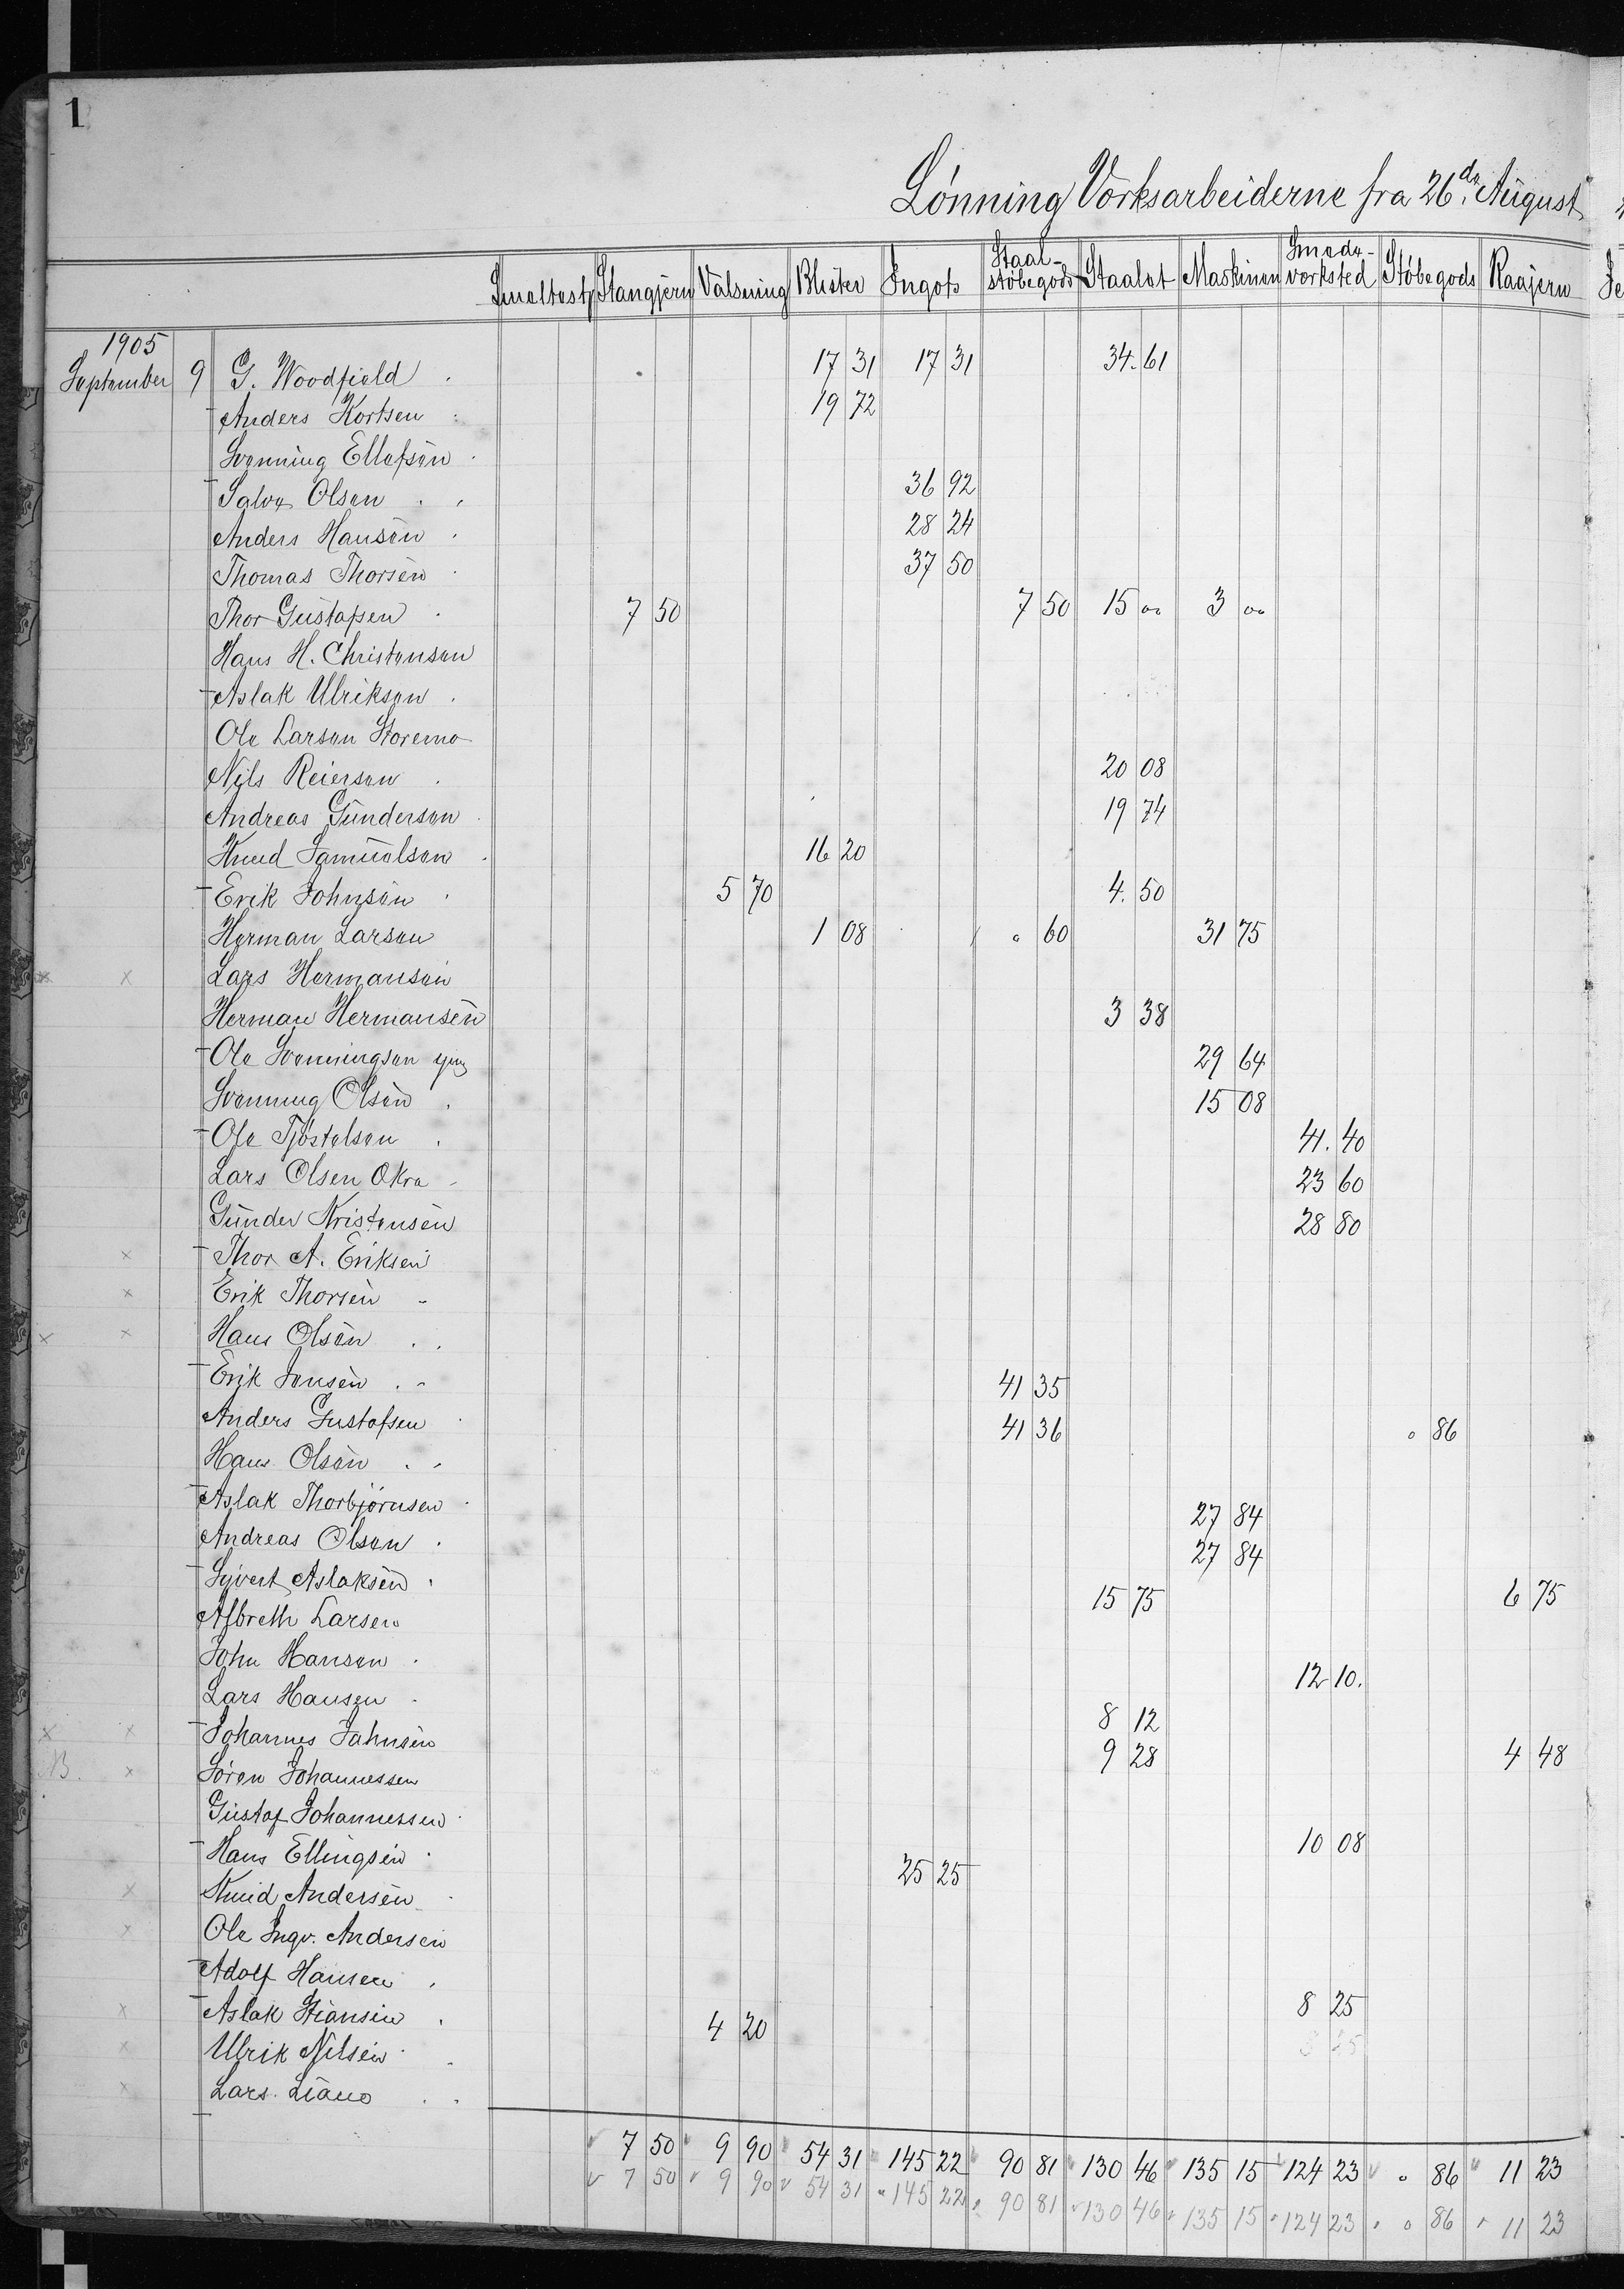 1
Lönning Værksarbeiderne fra 26de August
Smeltestp Stangjern Valsening Blister Ingots Staal-støbegods Staalet Maskinen Smede-værksted Støbegods Raajern
1905
September 9 G. Woodfield 17 31 17 31 34.61
Anders Kortsen 19 72
Svenning Ellefsen
Salve Olsen 36 92
Anders Hansen 28 24
Thomas Thorsen 37 50
Thor Gustafsen 7 50 7 50 15 oo 3 oo
Hans H. Christensen
Aslak Ulriksen
Ole Larsen Storemo
Nils Reiersen 20 08
Andreas Gundersen 19 74
Knud Samuelsen 16 20
Erik Johnsen 5 70 4. 50
Herman Larsen 1 08 " 60 31 75
x x Lars Hermansen
Herman Hermansen 3 38
Ole Svenningsen yng 29 64
Svenning Olsen 15 08
Ole Tjøstelsen 41. 40
Lars Olsen Okra 23 60
Gunder Kristensen 28 80
x Thor A. Eriksen
x Erik Thorsen
x x Hans Olsen
Erik Jensen 41 35
Anders Gustafsen 41 36 " 86
Hans Olsen
Aslak Thorbjørnsen 27 84
Andreas Olsen 27 84
Syvert Aslaksen 15 75 6 75
Albreth Larsen
John Hansen 12 10.
Lars Hansen 8 12
x x Johannes Jahnsen 9 28 4 48
x Søren Johannessen
Gustaf Johannessen
Hans Ellingsen 10 08
x Knud Andersen 25 25
x Ole Ingv. Andersen
Adolf Hansen
x Aslak Hansen 4 20 8 25
x Ulrik Nilsen
x Lars Liane
7 50 9 90 54 31 145 22 90 81 130 46 135 15 124 23 " 86 11 23
7 50 9 90 54 31 145 22 90 81 130 46 135 15 124 23 " 86 11 23